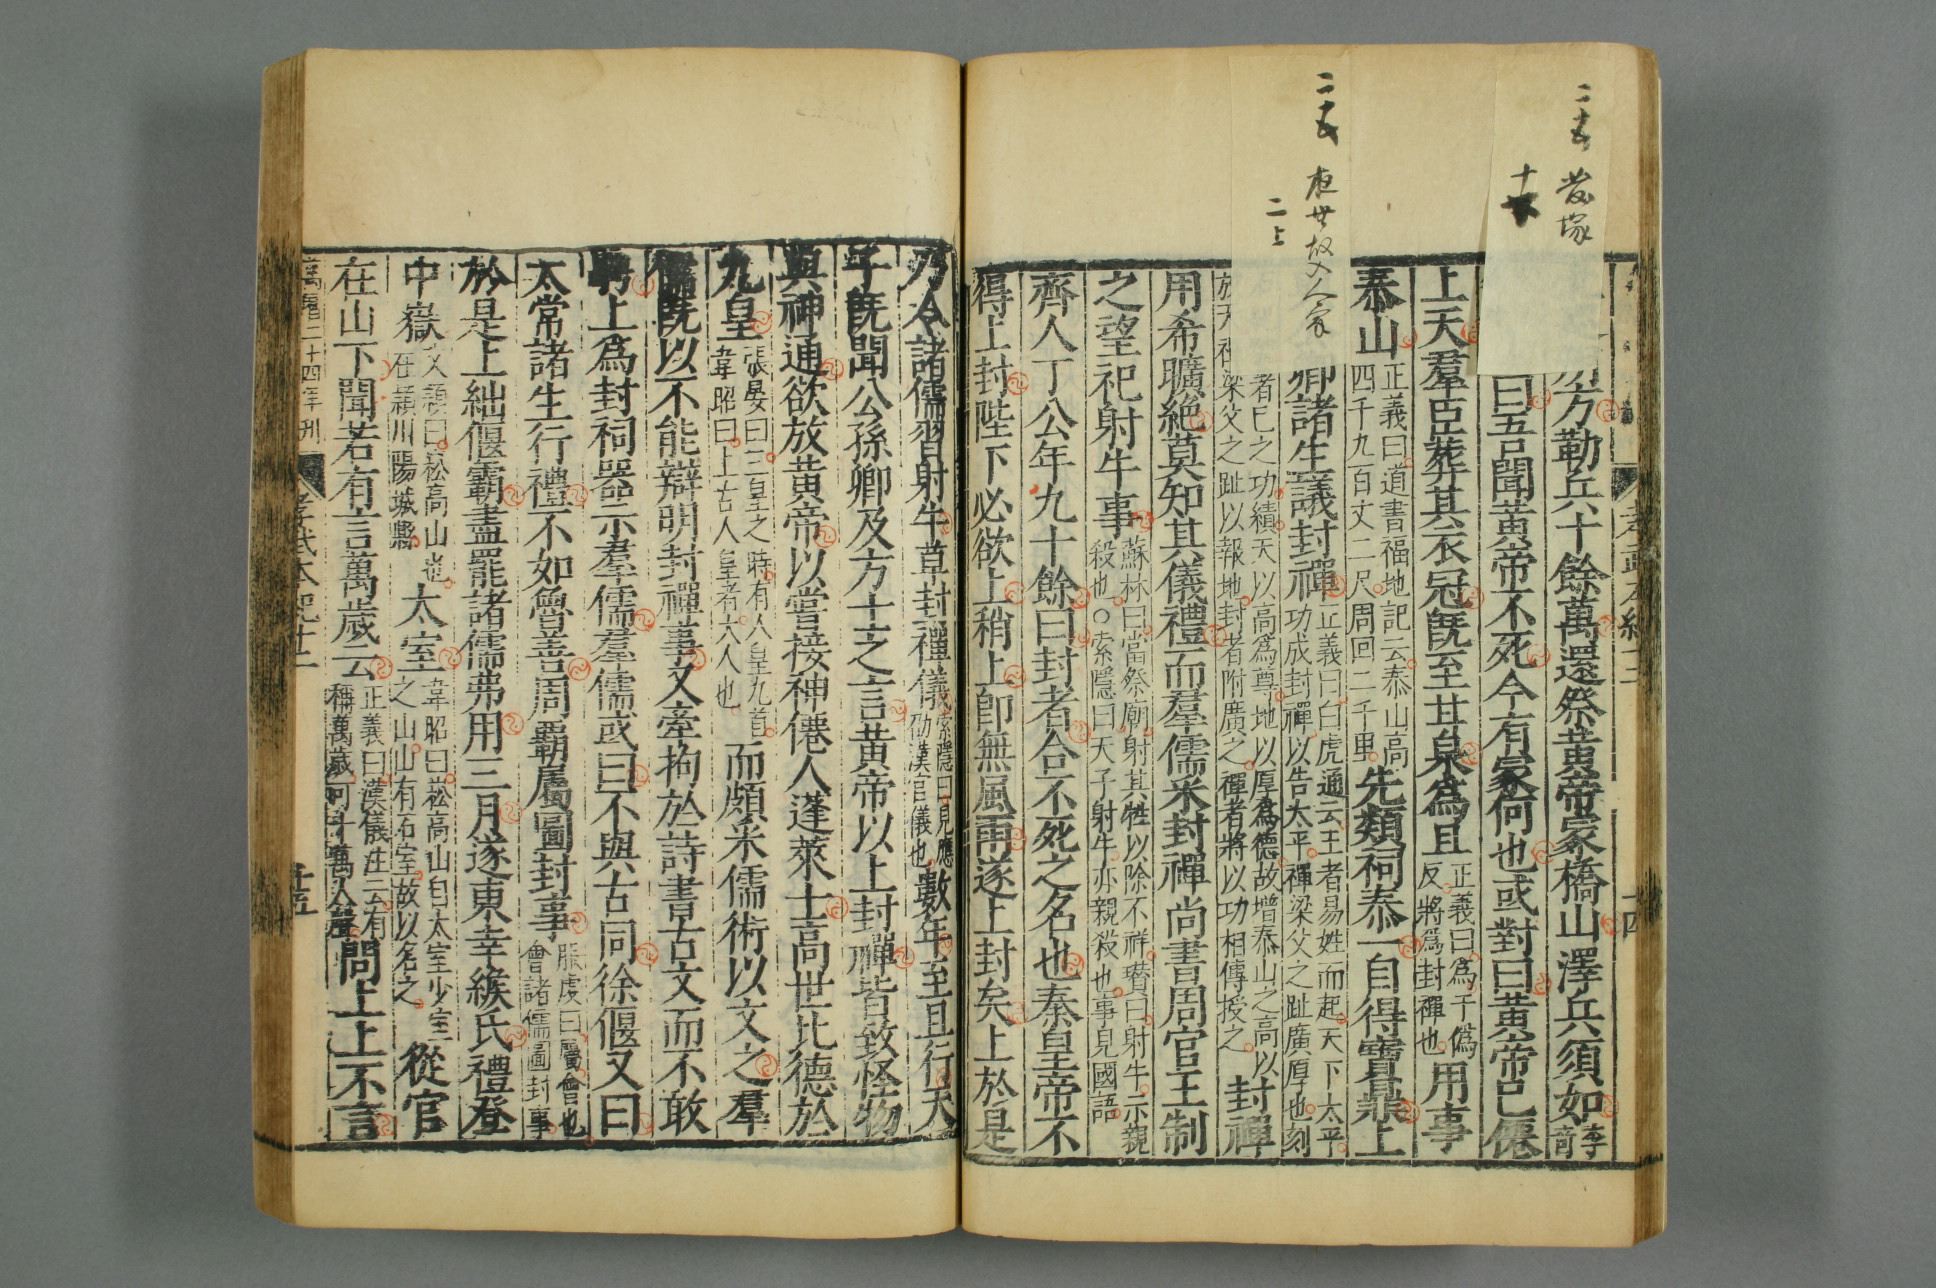 二十五 發塚
二十五 在世故人家
二上
孝武本紀十二
十四
方勒兵十餘萬還祭黃帝冢橋山澤兵須如李音
曰吾聞黃帝不死今有冢何也或對曰黃帝已僊
上天羣臣葬其衣冠旣至甘泉爲且正義曰爲于僞反將爲封禪也用事
泰山正義曰道書福地記云泰山高四千九百丈二尺周回二千里先類祠泰一自得寶鼎上
卿諸生議封禪正義曰白虎通云王者易姓而起天下太平功成封禪以告太平禪梁父之趾廣厚也刻
者已之功績天以高爲尊地以厚爲德故增泰山之高以放天禪梁父之趾以報地封者附廣之禪者將以功相傳授之封禪
用希曠絕莫知其儀禮而羣儒采封禪尚書周官王制
之望祀射牛事蘇林曰當祭廟射其牲以除不祥瓚曰射牛示親殺也○索隱曰天子射牛亦親殺也事見國語
齊人丁公年九十餘曰封者合不死之名也秦皇帝不
得上封陛下必欲上稍上卽無風雨遂上封矣上於是
乃令諸儒習射牛草封禪儀索隱曰見應劭漢官儀也數年至且行天
子旣聞公孫卿及方士之言黃帝以上封禪皆致怪物
與神通欲放黃帝以嘗接神僊人蓬萊士高世比德於
九皇張晏曰三皇之時有人皇九首韋昭曰上古人皇者六人也而頗采儒術以文之羣
儒旣以不能辯明封禪事又牽拘於詩書古文而不敢
騁上爲封祠器示羣儒羣儒或曰不與古同徐偃又曰
太常諸生行禮不如魯善周霸屬圖封事服虔曰屬會也會諸儒圖封事
於是上絀偃霸盡罷諸儒弗用三月遂東幸緱氏禮登
中嶽文頴曰崧高山也在潁川陽城縣太室韋昭曰崧高山自太室少室之山山有石室故以名之從官
在山下聞若有言萬歲云正義曰漢儀注云有稱萬歲可十萬人聲問上上不言
萬曆二十四年刊
孝武本紀十二
十五